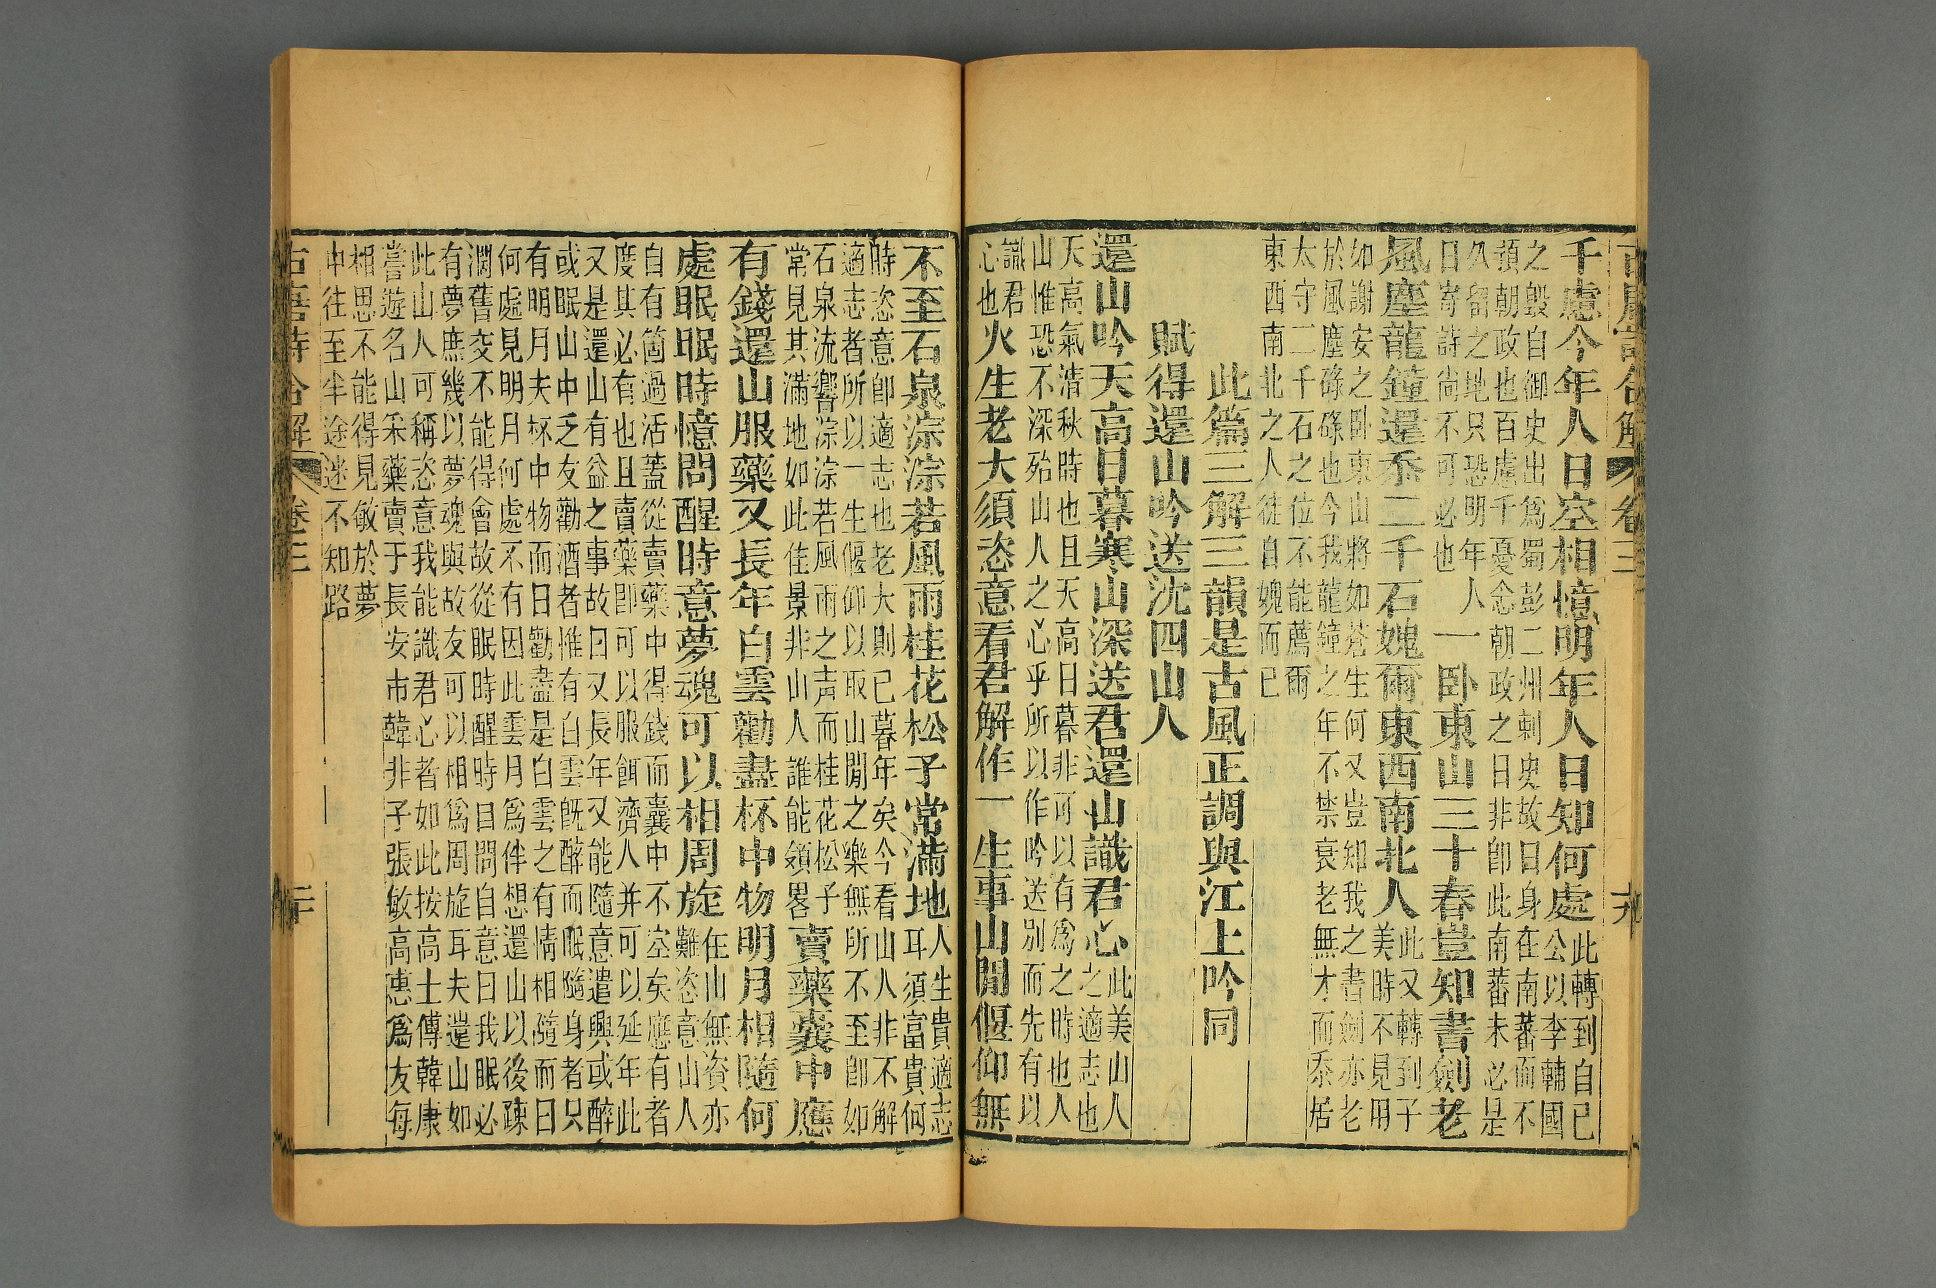 古唐詩合解 卷三 十九
千慮今年人日空相憶明年人日知何處此轉到自巳
公以李輔國
之毀自御史出爲蜀彭二州刺史故曰身在南蕃而不
預朝政也百慮千憂念朝政之日非卽此南蕃未必是
久留之地只恐明年人
日寄詩尚不可必也
一卧東山三十春豈知書劍老
風塵龍鐘還忝二千石媿爾東西南北人此又轉到子
美時不見用
如謝安之卧東山將如蒼生何又豈知我之書劍亦老
於風塵碌碌也今我龍鐘之年不禁衰老無才而忝居
太守二千石之位不能薦爾
東西南北之人徒自媿而已
此篇三解三韻是古風正調與江上吟同
賦得還山吟送沈四山人
還山吟天高日暮寒山深送君還山識君心此美山人
之適志也
天高氣清秋時也且天高日暮非可以有爲之時也人
山惟恐不深殆山人之心乎所以作吟送別而先有以
識君
心也
火生老大須恣意看君解作一生事山間偃仰無
不至石泉淙淙若風雨桂花松子常滿地人生貴適志
耳須富貴何
時恣意卽適志也老大則已暮年矣今看山人非不解
適志者所以一生偃仰以取山閒之樂無所不至卽如
石泉流響淙淙若風雨之声而桂花松子
常見其滿地如此佳景非山人誰能領畧
賣藥囊中應
有錢還山服藥又長年白雲勸盡杯中物明月相隨何
處眠眠時憶問醒時意夢魂可以相周旋在山無資亦
難恣意山人
自有箇過活蓋從賣藥中得錢而囊中不空矣應有者
度其必有也且賣藥卽可以服餌濟人并可以延年此
又是還山有益之事故曰又長年又能隨意遣興或醉
或眠山中乏友勸酒者惟有白雲旣醉而眠隨身者只
有明月夫杯中物而曰勸盡是白雲之有情相隨而曰
何處見明月何處不有因此雲月爲伴想還山以後踈
濶舊交不能得會故從眠時醒時目問自意曰我眠必
有夢庶幾以夢魂與故友可以相爲周旋耳夫還山如
此山人可稱恣意我能識君心者如此按高士傳韓康
嘗遊名山采藥賣于長安市韓非子張敏高惠爲友每
相思不能得見敏於夢
中往至半途迷不知路
古唐詩合解 卷三 二十